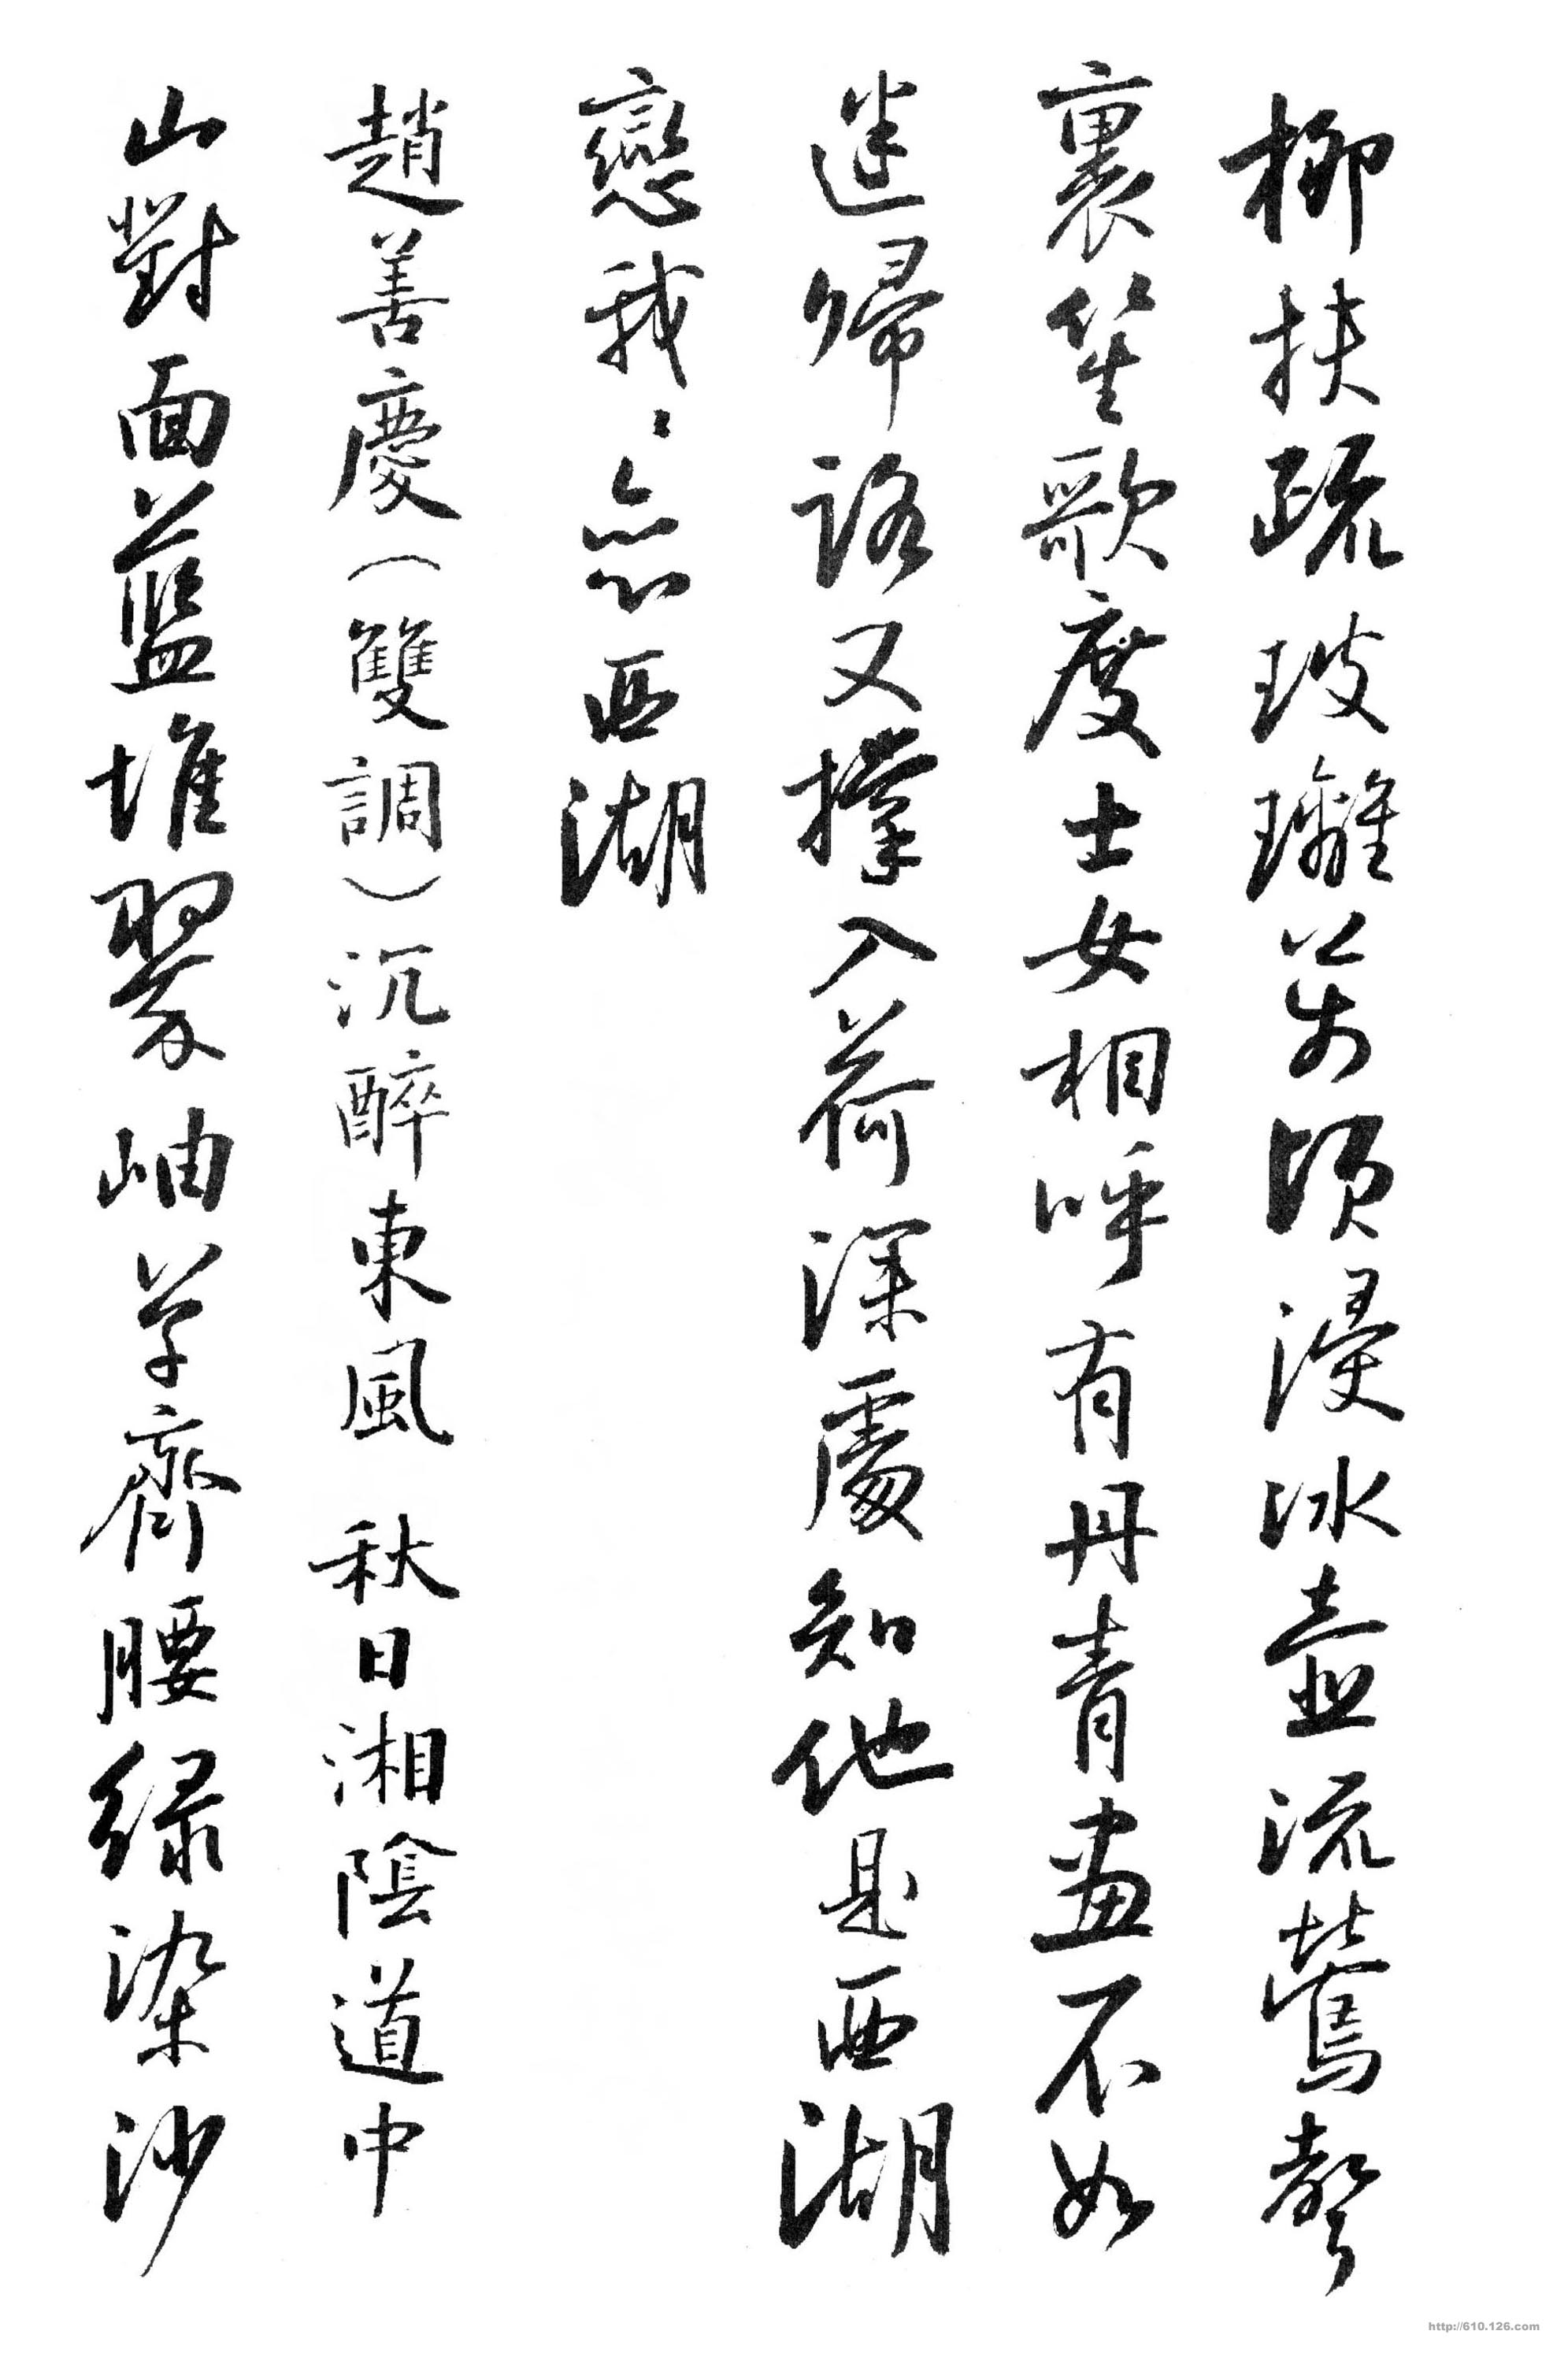 柳扶疏玻璃萬頃浸冰壺流鶯聲
裏笙歌度士女相呼有丹青畫不如
迷歸路又撑入荷深處知他是西湖
戀我〻恋西湖
趙善慶（雙調）沉醉東風 秋日湘陰道中
山對面藍堆翠岫草齊腰緑染沙
http://610.126.com